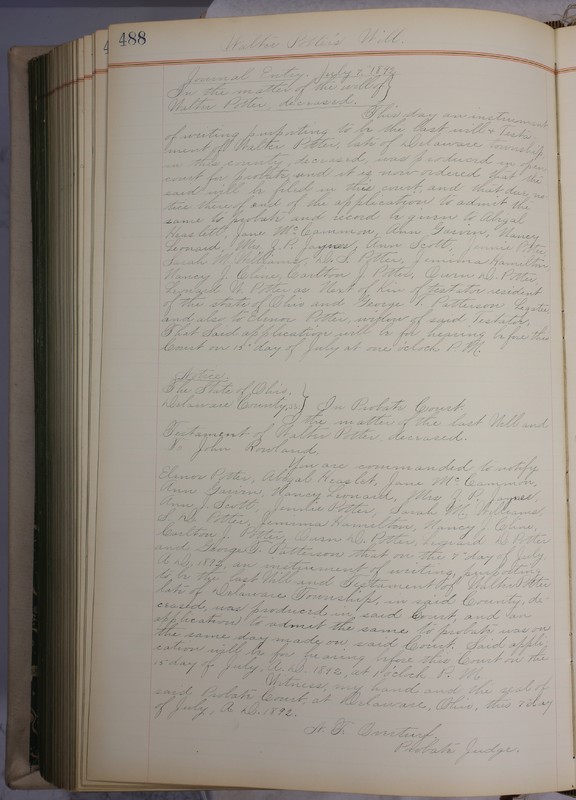 488
Walter Potter's Will.
Journal Entry, July 7, 1892
In the matter of the will of
Walter Potter, deceased.
This day an instrument
of writing purporting to be the last will & Testa
ment of Walter Potter, late of Delaware Township
in this county, deceased, was produced in open
court for probate, and it is now ordered that the
said will be filed in this court and that due no
tice thereof and of the application to admit the
same to probate and record be given to Abigal
Heaslett, Jane McCammon, Ann Garvin, Nancy
Leonard, Mrs. J. P. Jaynes, Ann Scott, Jennie Potter
Sarah M. Williams, L. S. Potter, Jemima Hamelton,
Nancy J. Cline, Carlton J. Potter, Owen D. Potter,
N. Potter as Next of Kin of testator resident
of the state of Ohio and George T. Patterson legatee
and also to Elenor Potter, widow of said Testator,
That Said application will be for hearing before this
Court on 15" day of July at one o'clock P.M.
Notice.
The State of Ohio,
Delaware County, ss } In Probate Court.
In the matter of the last Will and
Testament of Walter Potter, deceased.
To John Rowland.
You are commanded to notify
Elenor Potter, Abigal Heaslet, Jane McCammon,
Ann Garvin, Nancy Leonard, Mrs. J. P. Jaynes,
Ann J. Scott, Jennie Potter, Sarah M. Williams,
L. S. Potter, Jemima Hamelton, Nancy J. Cline,
Carlton J. Potter, Owen D. Potter, Potter
and George T. Patterson that on the 7" day of July,
A.D. 1892, an instrument of writing, purporting
to be the last Will and Testament of Walter Potter
late of Delaware Township, in said County, de-
ceased, was produced in said Court, and an
application to admit the same to probate was on
the same day made, on said Court. Said appli
cation will be for hearing before this Court on the
15" day of July, A.D. 1892, at 1 o'clock P. M.
Witness, my hand and the seal of
said Probate Court, at Delaware, Ohio, this 7" day
of July, A.D. 1892.
Probate Judge.